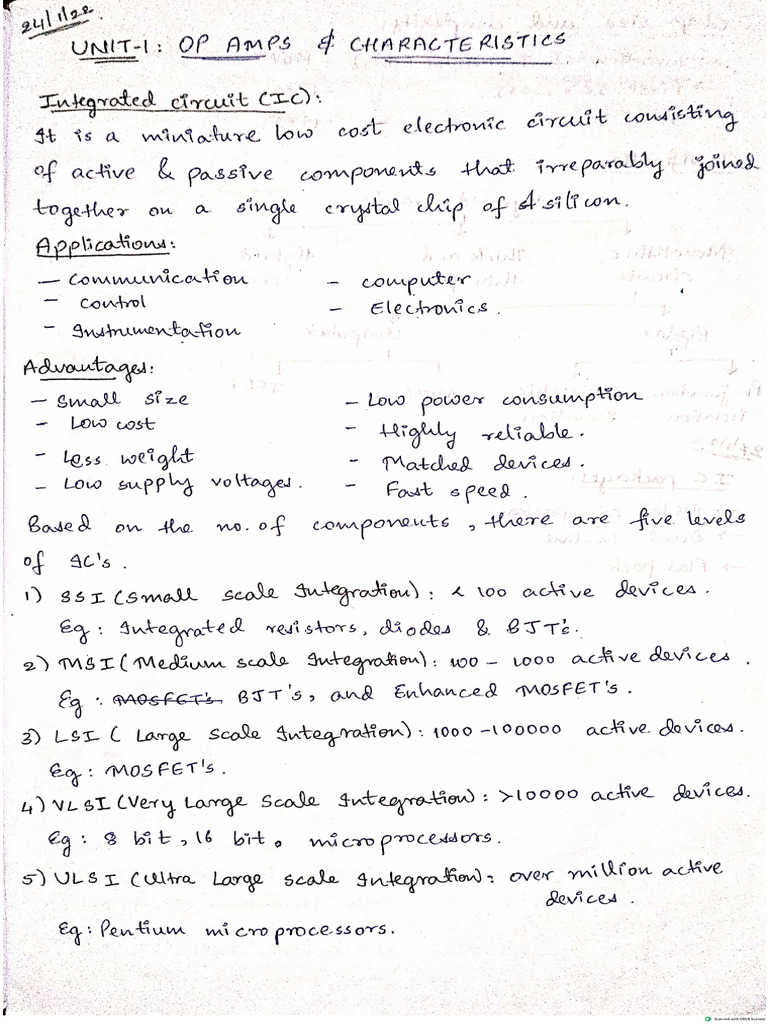 24/1/22
UNIT-1: OP AMPS & CHARACTERISTICS
Integrated circuit (IC):
It is a miniature low cost electronic circuit consisting
of active & passive components that irreparably joined
together on a single crystal chip of silicon.
Applications:
- Communication - computer
- control - Electronics.
- Instrumentation
Advantages:
- Small size - Low power consumption
- Low cost - Highly reliable.
- Less weight - Matched devices.
- Low supply voltages. - Fast speed.
Based on the no. of components, there are five levels
of IC's.
1) SSI (Small scale Integration): < 100 active devices.
Eg: Integrated resistors, diodes & BJT's.
2) MSI (Medium scale Integration): 100 - 1000 active devices.
Eg: MOSFET's BJT's, and Enhanced MOSFET's.
3) LSI ( Large Scale Integration): 1000 -100000 active devices.
Eg: MOSFET's.
4) VLSI (Very Large Scale Integration): >10000 active devices.
Eg: 8 bit, 16 bit. microprocessors.
5) ULSI (Ultra Large scale Integration): over million active
devices.
Eg: Pentium microprocessors.
Scanned with OKEN Scanner